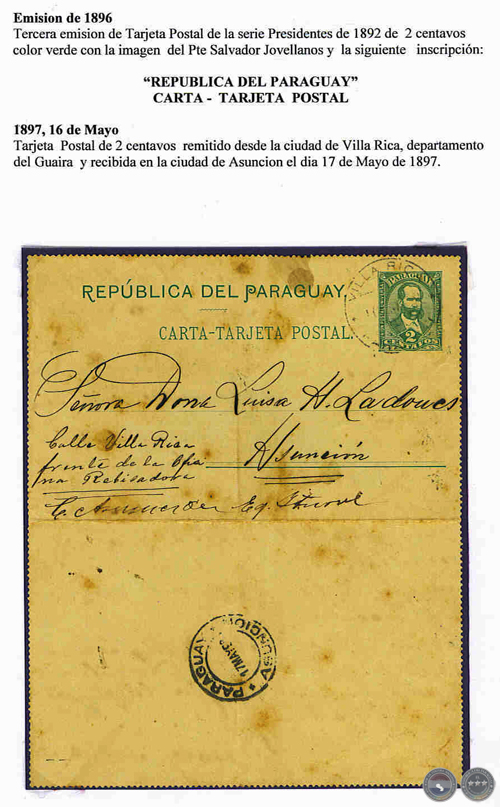 Emision de 1896
Tercera emision de Tarjeta Postal de la serie Presidentes de 1892 de 2 centavos
color verde con la imagen del Pte Salvador Jovellanos y la siguiente inscripción:
“REPUBLICA DEL PARAGUAY”
CARTA - TARJETA POSTAL
1897, 16 de Mayo
Tarjeta Postal de 2 centavos remitido desde la ciudad de Villa Rica, departamento
del Guaira y recibida en la ciudad de Asuncion el dia 17 de Mayo de 1897.
VILLA RICA
PARAGUAY
REPÚBLICA DEL PARAGUAY.
CARTA-TARJETA POSTAL.
2
CENTAVOS
Señora Dona Luisa H. Ladouch
Calle Villa Rica
Asunción
frente de la Ofi
na Rebisadora
ASUNCION
17 MAY
PARAGUAY